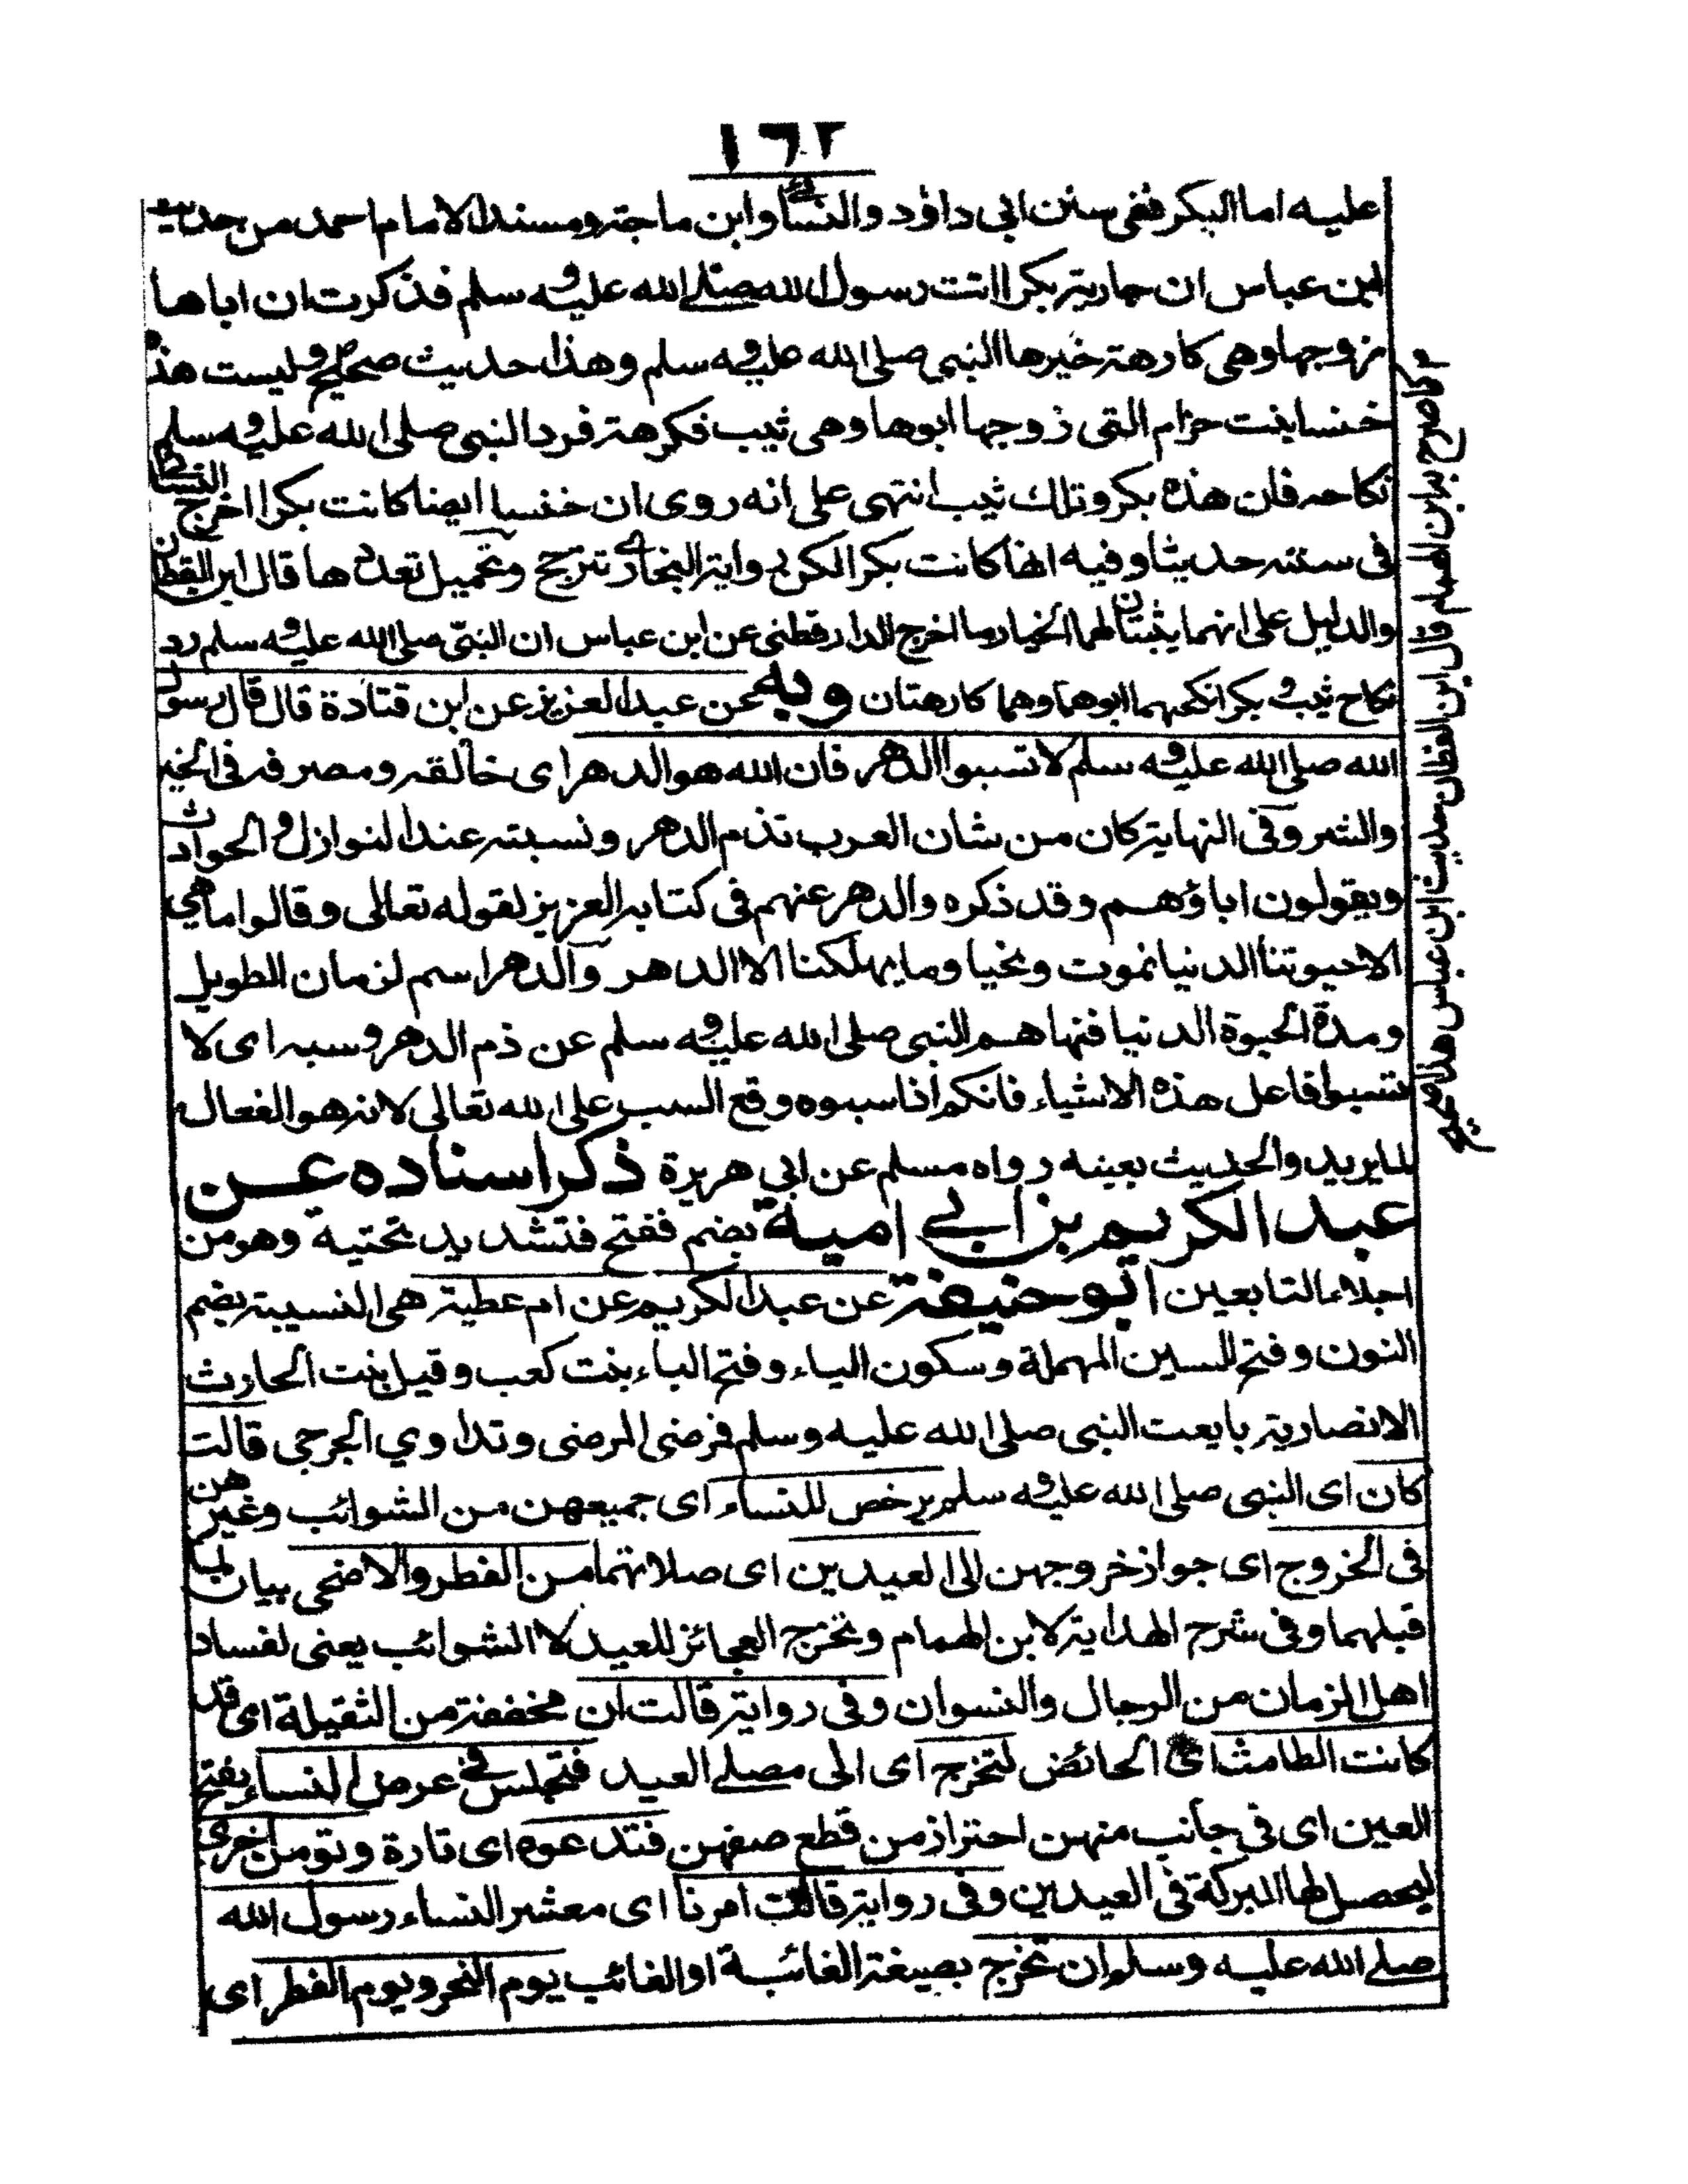 ١٦٢
عليه اما البكر ففى سنن ابى داؤد والنسائى وابن ماجة ومسند الامام احمد من حديث
ابن عباس ان جارية بكرا اتت رسول الله صلى الله عليه وسلم فذكرت ان اباها
زوجها وهى كارهة خيرها النبى صلى الله عليه وسلم وهذا حديث صحيح وليست هذه
خنسا بنت حزام التى زوجها ابوها وهى ثيب فكرهة فرد النبى صلى الله عليه وسلم
نكاحه فان هذه بكر وتلك ثيب انتهى على انه روى ان خنسا ايضا كانت بكرا اخرج النسائى
فى سننه حديثا وفيه انها كانت بكرا لكن رواية البخارى تترجح وتحميل تعددها قال ابن القطان
والدليل على انهما يثبتان لهما الخيار ما اخرج الدارقطنى عن ابن عباس ان النبى صلى الله عليه وسلم رد
نكاح ثيب وبكر انكحهما ابوهما وهما كارهتان وبه عن عبد العزيز عن ابن قتادة قال قال رسول
الله صلى الله عليه وسلم لا تسبوا الدهر فان الله هو الدهر اى خالقه ومصرفه فى الخير
والشر وفى النهاية كان من شان العرب تذم الدهر ونسبته عند النوازل والحوادث
ويقولون اباؤهم وقد ذكره والدهر عنهم فى كتابه العزيز لقوله تعالى وقالوا ما هي
الا حيوتنا الدنيا نموت ونحيا وما يهلكنا الا الدهر والدهر اسم لزمان الطويل
ومدة الحيوة الدنيا فنهاهم النبى صلى الله عليه وسلم عن ذم الدهر وسبه اى لا
تسبوا فاعل هذه الاشياء فانكم اذا سبوه وقع السب على الله تعالى لانه هو الفعال
لما يريد والحديث بعينه رواه مسلم عن ابى هريرة ذكر اسناده عن
عبد الكريم بن ابي امية بضم ففتح فتشديد تحتية وهو من
اجلاء التابعين ابو حنيفة عن عبد الكريم عن ام عطية هى النسيبة بضم
النون وفتح السين المهملة وسكون الياء وفتح الباء بنت كعب وقيل بنت الحارث
الانصارية بايعت النبى صلى الله عليه وسلم فرضى المرضى وتداوي الجرحى قالت
كان اى النبى صلى الله عليه وسلم يرخص للنساء اى جميعهن من الشوائب وغيرهن
فى الخروج اى جواز خروجهن الى العيدين اى صلاتهما من الفطر والاضحى بيان لما
قبلهما وفى شرح الهداية لابن الهمام وتخرج العجائز للعيد لا الشوائب يعنى لفساد
اهل الزمان من الرجال والنسوان وفى رواية قالت ان مخففة من الثقيلة اى قد
كانت الطامث اى الحائض لتخرج اى الى مصلى العيد فتجلس فى عرض النساء بفتح
العين اى فى جانب منهن احتراز من قطع صفهن فتدعوه اى تارة وتومن اخرى
ليحصل لها البركة فى العيدين وفى رواية قالت امرنا اى معشر النساء رسول الله
صلى الله عليه وسلم ان تخرج بصيغة الغائبة او الغائب يوم النحر ويوم الفطر اى
كما صرح به ابن الهمام وقال ابن القطان حديث ابن عباس هذا صحيح